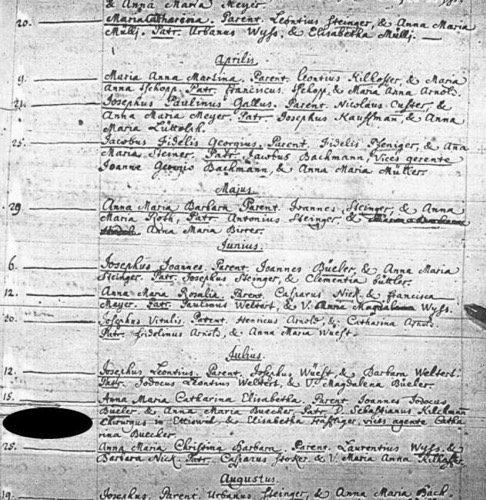 & Anna Maria Meyer.
20. Maria Catharina. Parent. Leontius Steinger, & Anna Maria
Müllj. Patr. Urbanus Wyss, & Elisabetha Müllj.
Aprilis.
9. Maria Anna Martina. Parent. Leontius Kilholfer, & Maria
Anna Schopp. Patr. Franciscus Schopp, & Maria Anna Arnold.
21. Josephus Paulinus Gallus. Parent. Nicolaus Custer, &
Anna Maria Meyer. Patr. Josephus Kauffman, & Anna
Maria Lüttolch.
25. Jacobus Fidelis Georgius. Parent. Fidelis Pfeniger, & Ana
Maria Steiner. Patr. Jacobus Bachmann, Vices gerente
Joanne Georgio Bachmann, & Anna Maria Müller.
Majus.
29. Anna Maria Barbara. Parent. Joannes Steinger, & Anna
Maria Roth. Patr. Antonius Steinger, & Maria Barbara
Anna Maria Birrer.
Junius.
6. Josephus Joannes. Parent. Joannes Büeler, & Anna Maria
Steinger. Patr. Josephus Steinger, & Clementia büttler.
12. Anna Maria Rosalia. Parent. Casparus Nick, & Francisca
Meyer. Patr. Paulinus Weltert, & V. Anna Magdalena Wyss.
20. Josephus Vitalis. Parent. Henricus Arnold, & Catharina Arnold.
Patr. Fidolinus Arnold, & Anna Maria Wüest.
Julius.
12. Josephus Leontius. Parent. Josephus Wüest, & Barbara Weltert.
Patr. Jodocus Leontius Weltert, & V. Magdalena Büeler.
15. Anna Maria Catharina Elisabetha. Parent. Joannes Jodocus
Büeler & Anna Maria Buecker. Patr. D. Sebastianus Kilchman
Chirurgus in Ettiswil & Elisabetha Staffinger, vices agente Catha
rina Buecker
25. Anna Maria Christina Barbara. Parent. Laurentius Wyss, &
Barbara Nick. Patr. Casparus Stoker, & V. Maria Anna Kilholfer
Augustus.
19. Josephus. Parent. Urbanus Steinger, & Anna Maria Bäch